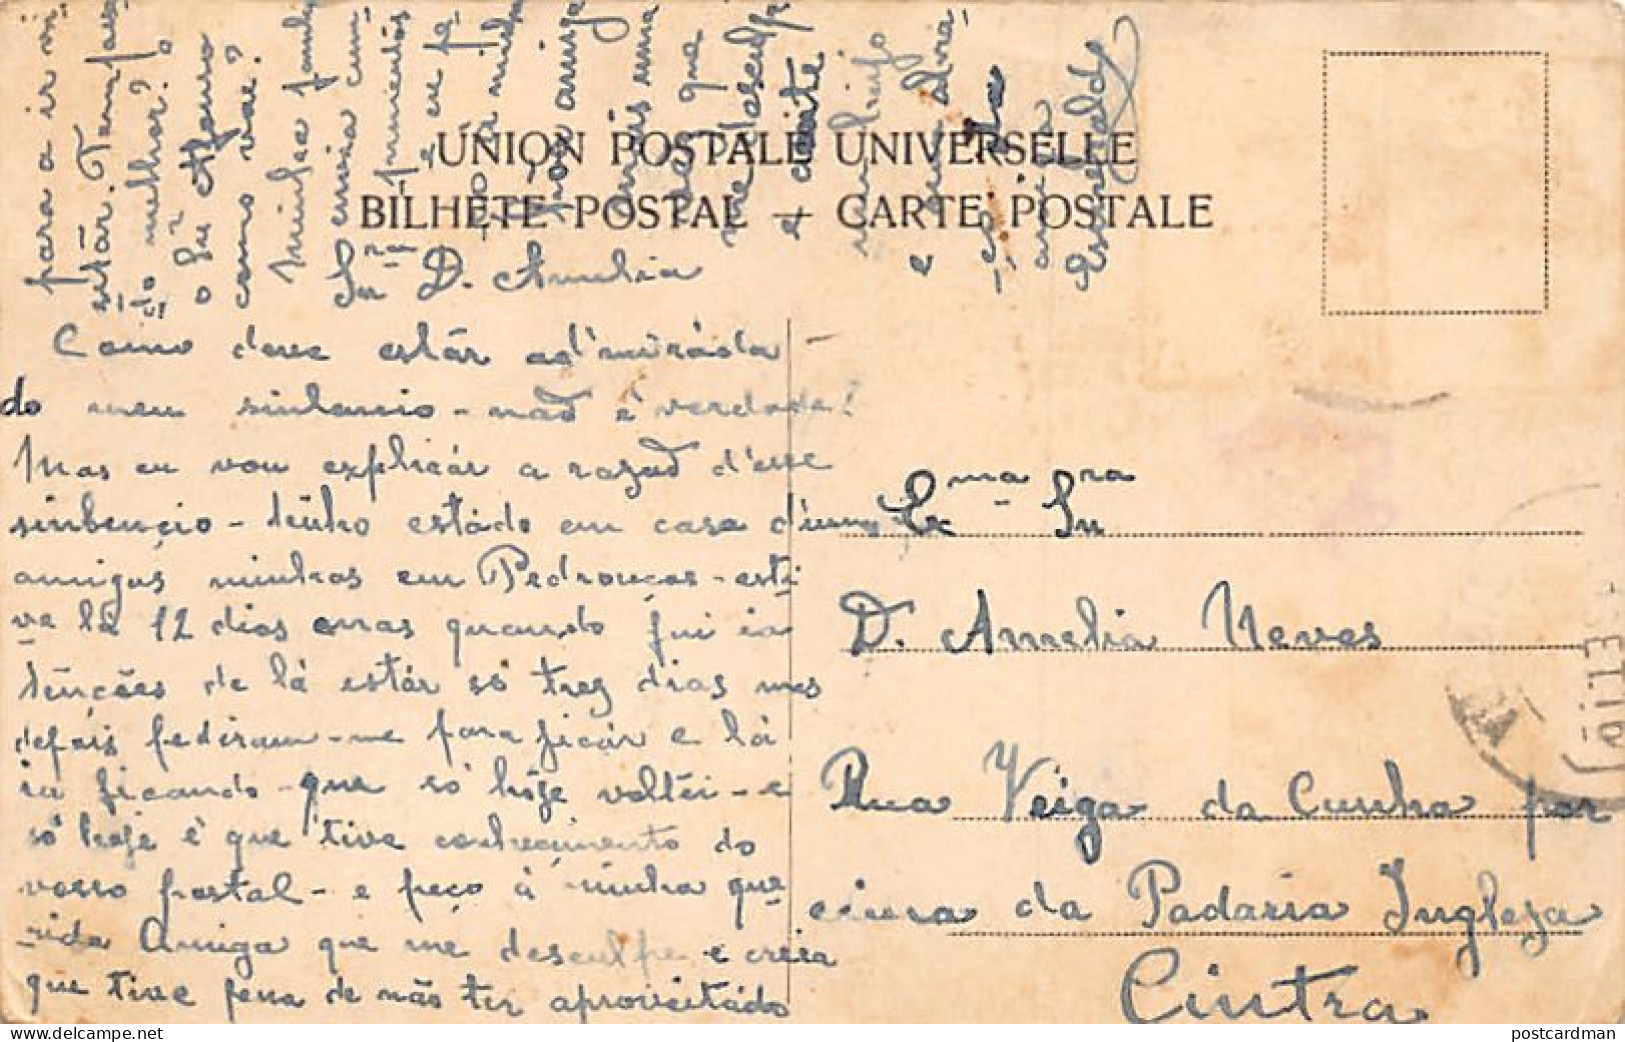 UNION POSTALE UNIVERSELLE
BILHETE POSTAL + CARTE POSTALE
Snra D. Amelia
Como deve estár ad'miráda
do meu sinlancio - não é verdade!
Mas eu vou explicár a razaõ d'esse
sinlencio - tenho estádo em casa d'umas
amigas minhas em Pedrouços - esti
ve lá 12 dias mas quando fui ia
tenções de lá estár só trez dias mas
depois pediram-me para ficár e lá
ia ficando - que só hoje voltei - e
só hoje é que tive conhecimento do
vosso postal - e peço á minha que
rida Amiga que me desculpe e creia
que tive pena de não ter aproveitádo
para a ir vi
sitár. Tem pas
to melhor? o
o Snr Afonso
como vae?
Minha familia
envia cum
primentos
e eu pe
ço á minha
boa amiga
mais uma
vez que
me desculpe
e aceite
um beijo
que lhe
amiga
Esmeralda
Exma Snra
D. Amelia Neves
Rua Veiga da Cunha por
cima da Padaria Ingleza
Cintra
postcardman
www.delcampe.net